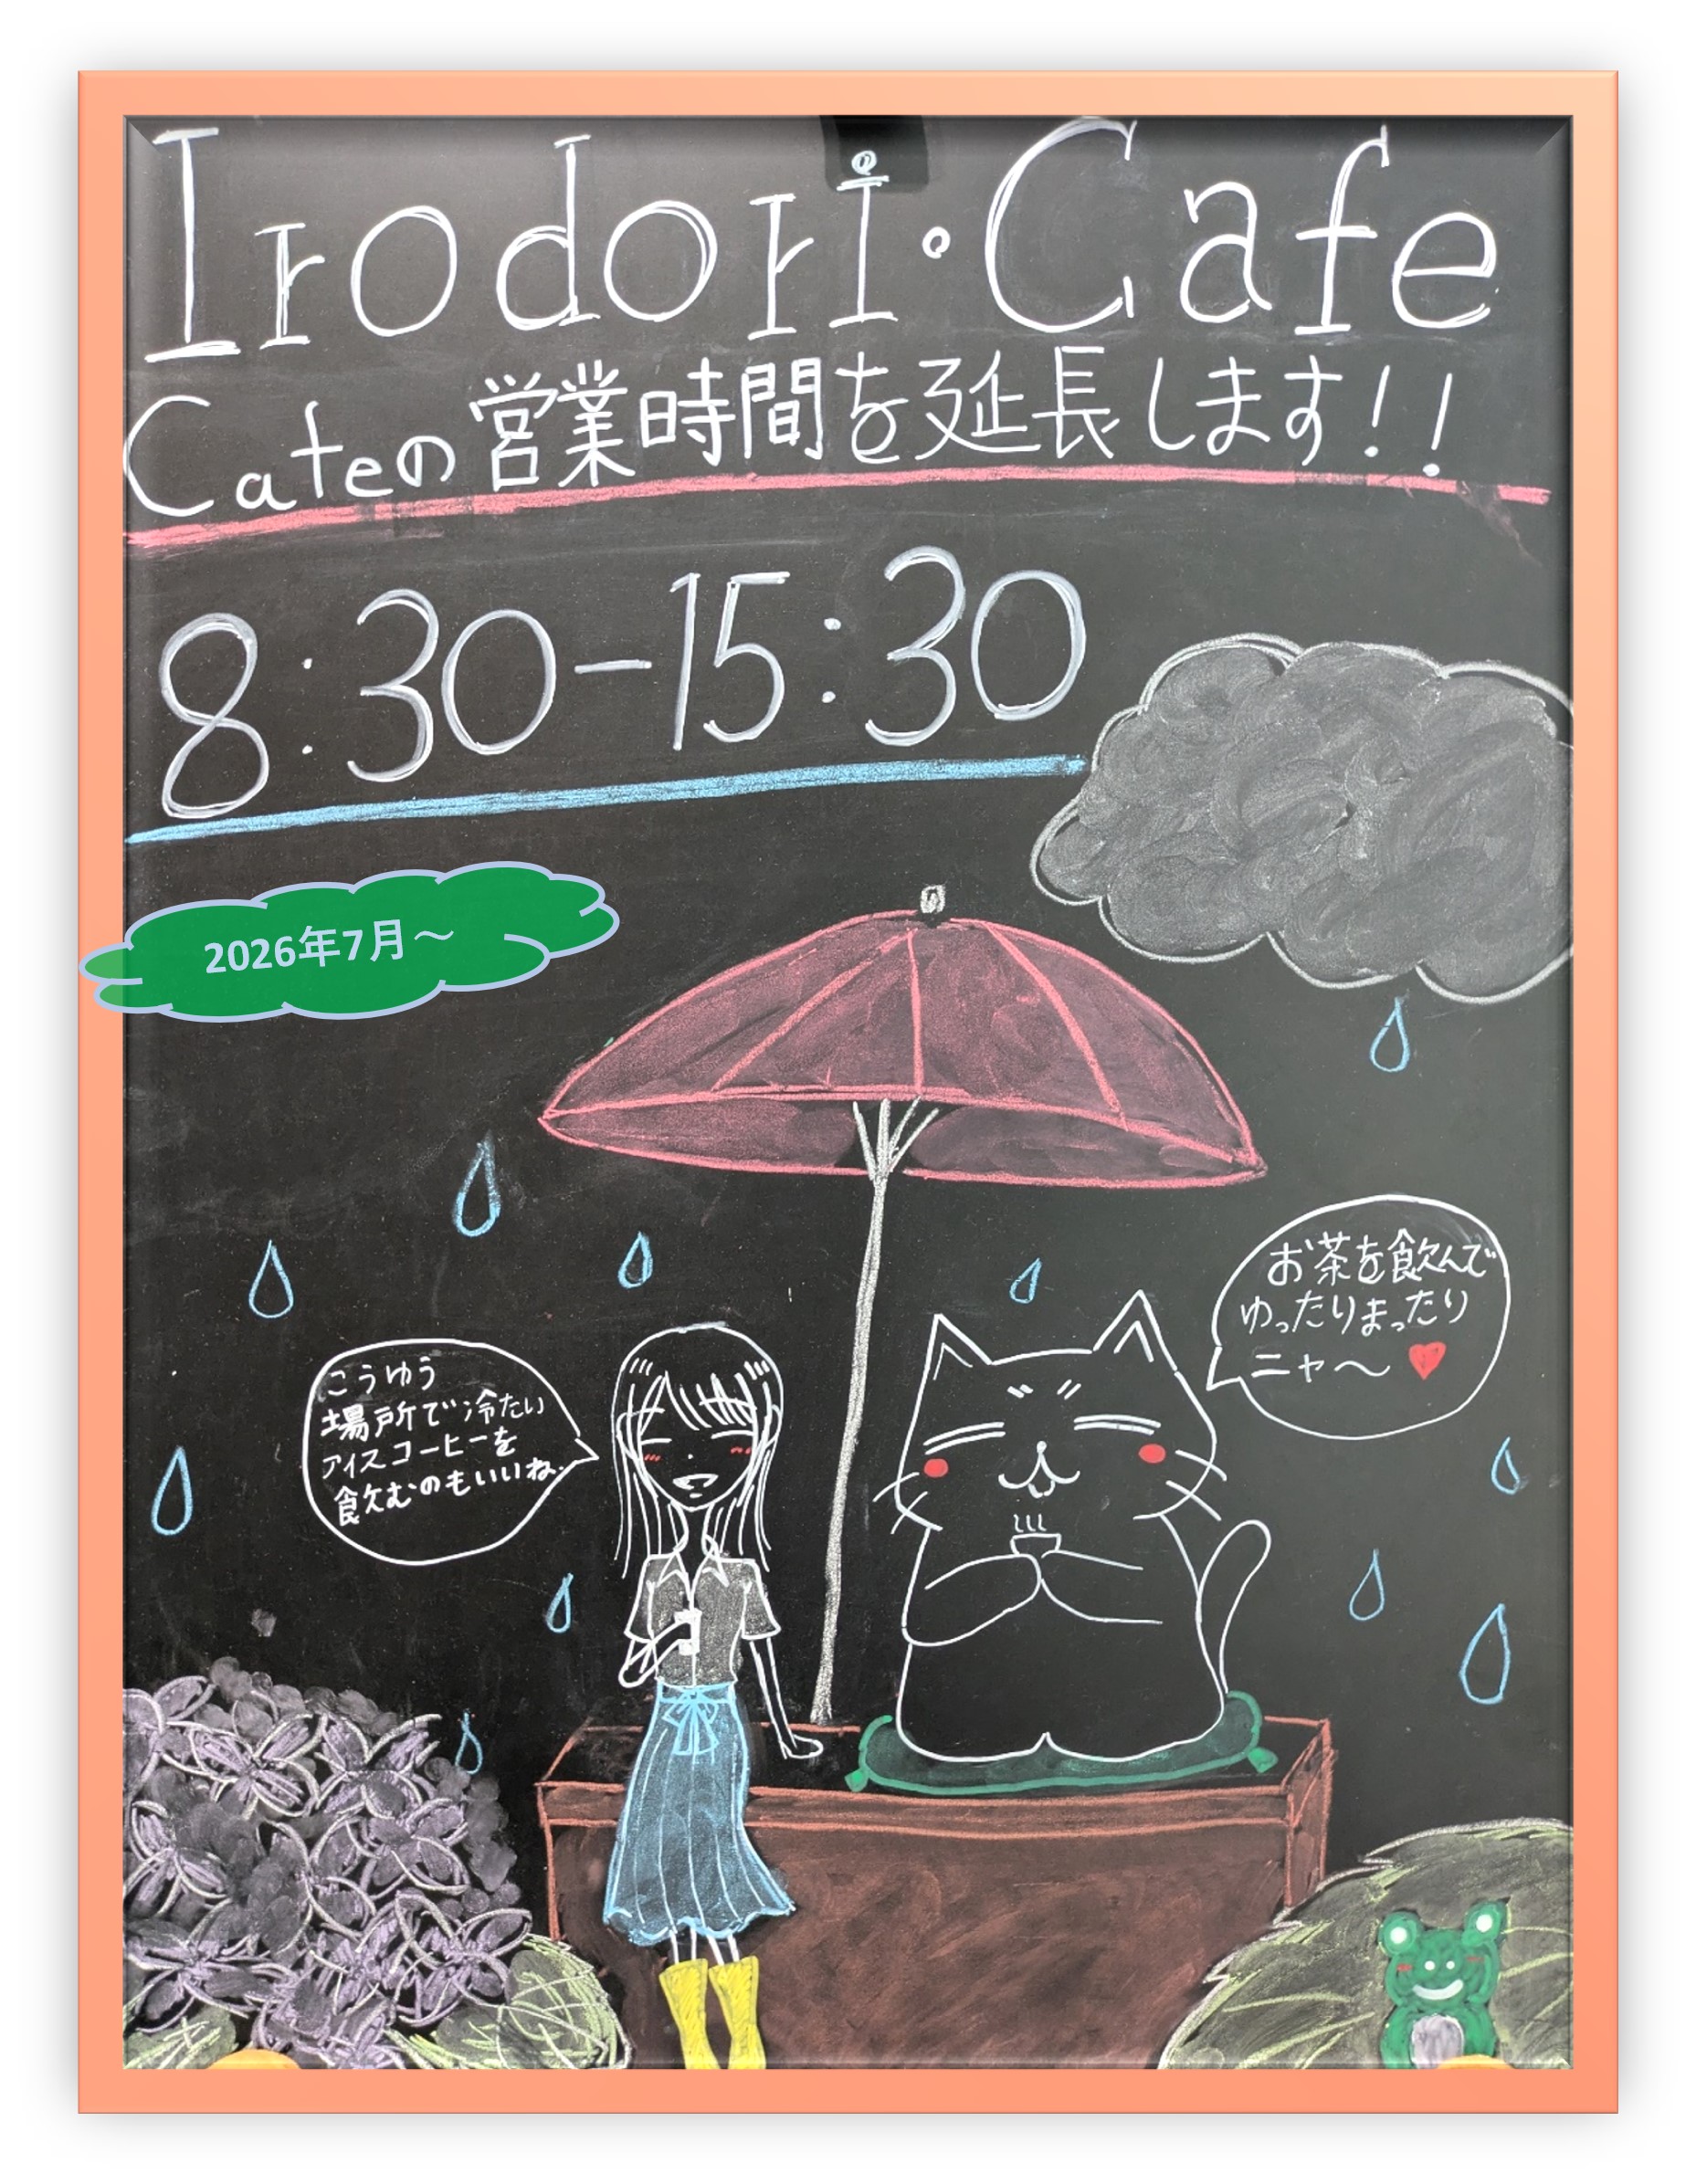 Irodori・Cafe
Cafeの営業時間を延長します!!
8:30-15:30
2026年7月～
お茶を飲んで
ゆったりまったり
ニャ～
こうゆう
場所で冷たい
アイスコーヒーを
飲むのもいいね.